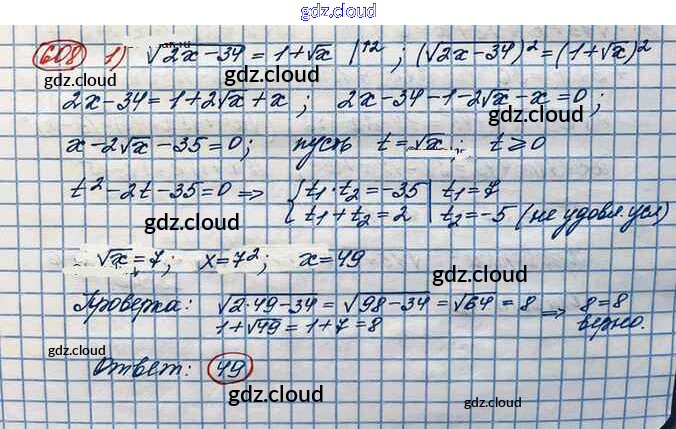 gdz.cloud
608 1) √2x-34 = 1+√x |↑2 ; (√2x-34)² = (1+√x)²
gdz.cloud gdz.cloud
2x-34=1+2√x+x ; 2x-34-1-2√x-x=0 ;
gdz.cloud
x-2√x-35=0; пусть t=√x ; t≥0
t²-2t-35=0 => { t₁·t₂=-35 | t₁=7
gdz.cloud
t₁+t₂=2 | t₂=-5 (не удовл. усл)
√x=7; x=7²; x=49
gdz.cloud
Проверка: √2·49-34 = √98-34 = √64 = 8 => 8=8
1+√49 = 1+7 = 8 верно.
gdz.cloud
Ответ: 49
gdz.cloud gdz.cloud